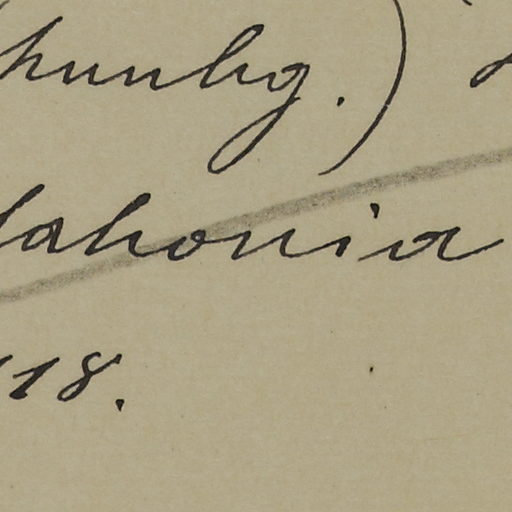 Thunbg.)
Mahonia
118.